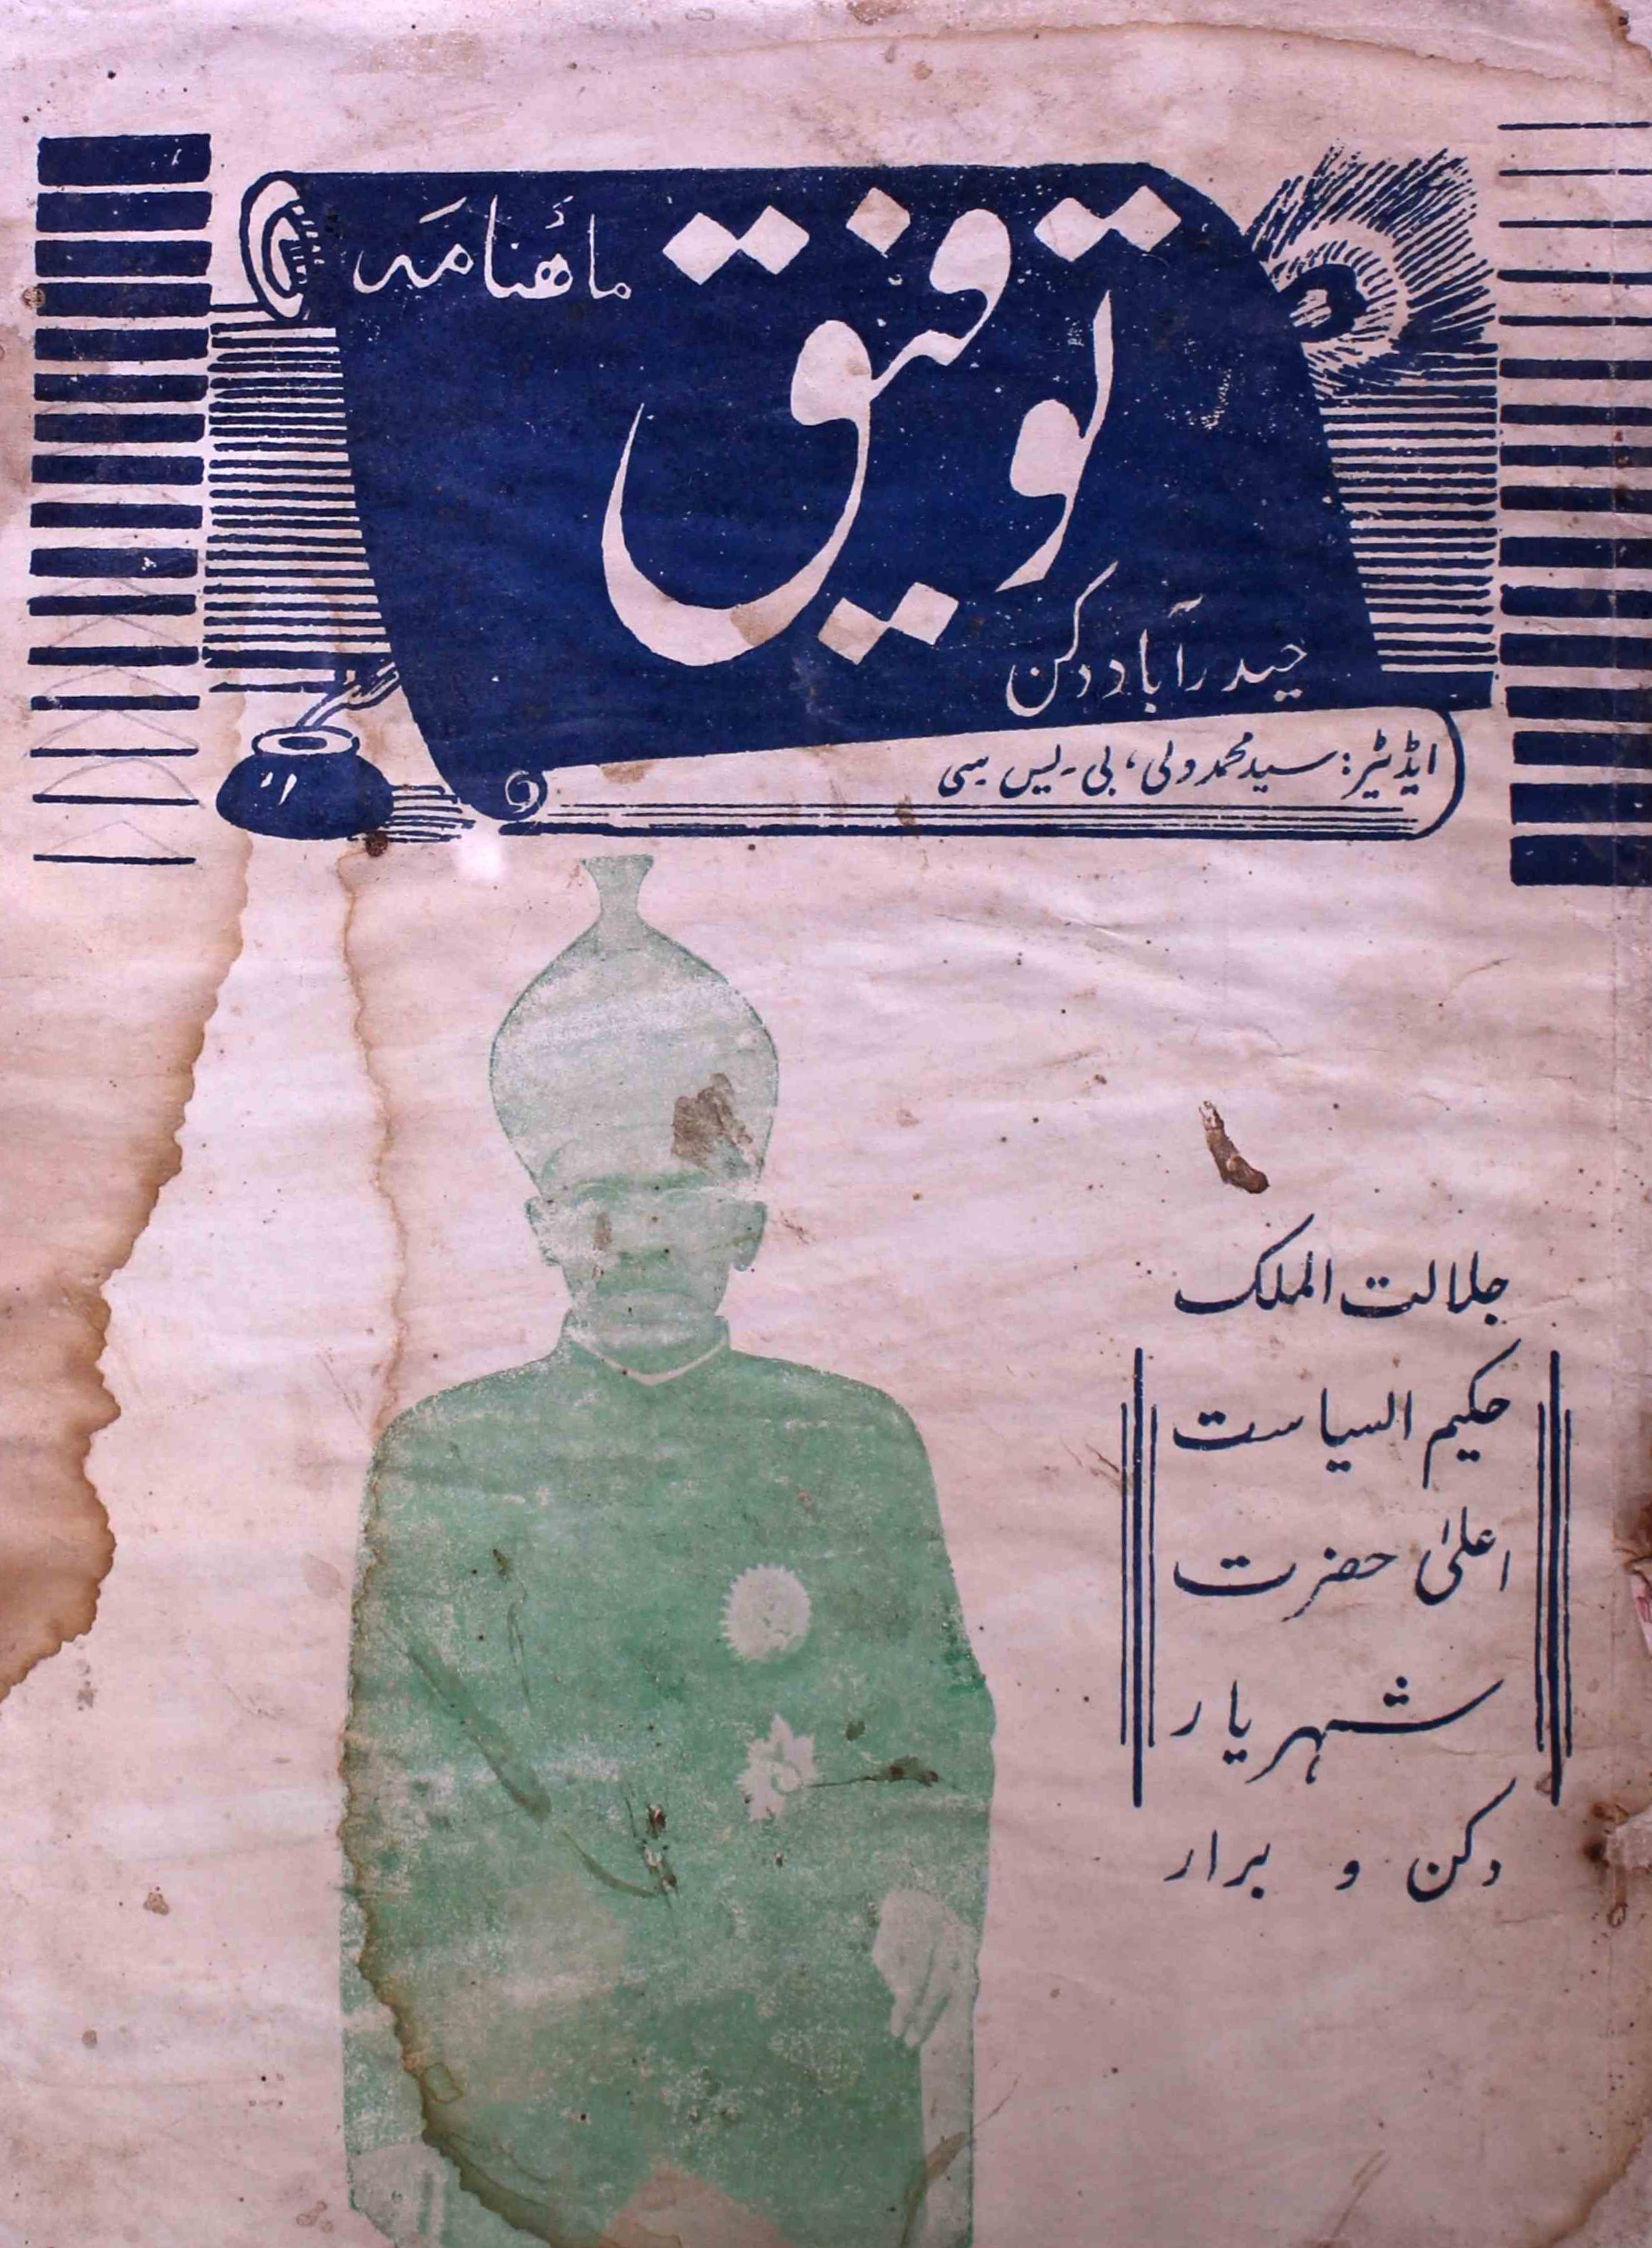 ماہنامہ
توفیق
حیدرآباد دکن
ایڈیٹر: سید محمد ولی، بی۔یس سی
جلالت الملک
حکیم السیاست
اعلیٰ حضرت
شہریار
دکن و برار